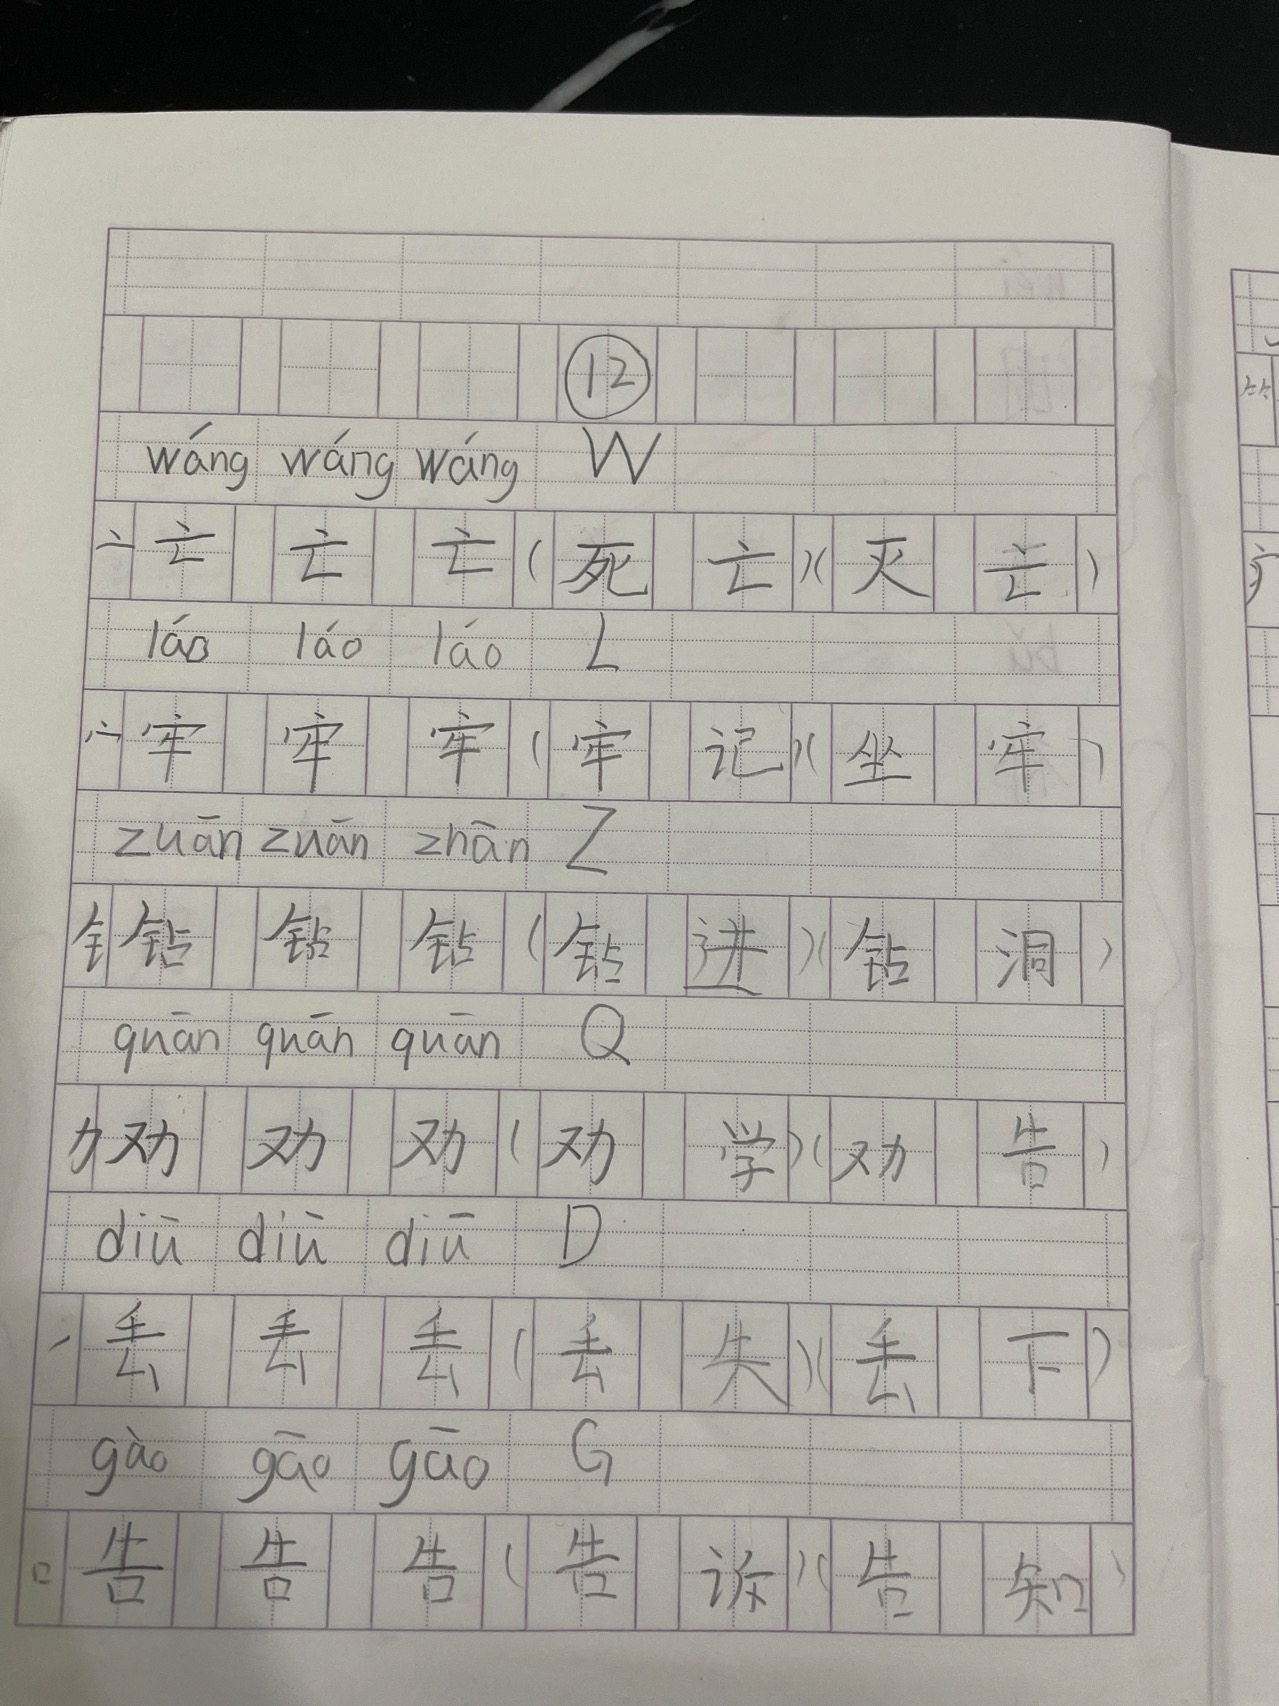 12
wáng wáng wáng W
亠 亡 亡 亡 ( 死 亡 )( 灭 亡 )
láo láo láo L
宀 牢 牢 牢 ( 牢 记 )( 坐 牢 )
zuān zuān zhān Z
钅 钻 钻 钻 ( 钻 进 )( 钻 洞 )
quān quān quān Q
力 劝 劝 劝 ( 劝 学 )( 劝 告 )
diū diū diū D
丿 丢 丢 丢 ( 丢 失 )( 丢 下 )
gào gāo gāo G
口 告 告 告 ( 告 诉 )( 告 知 )